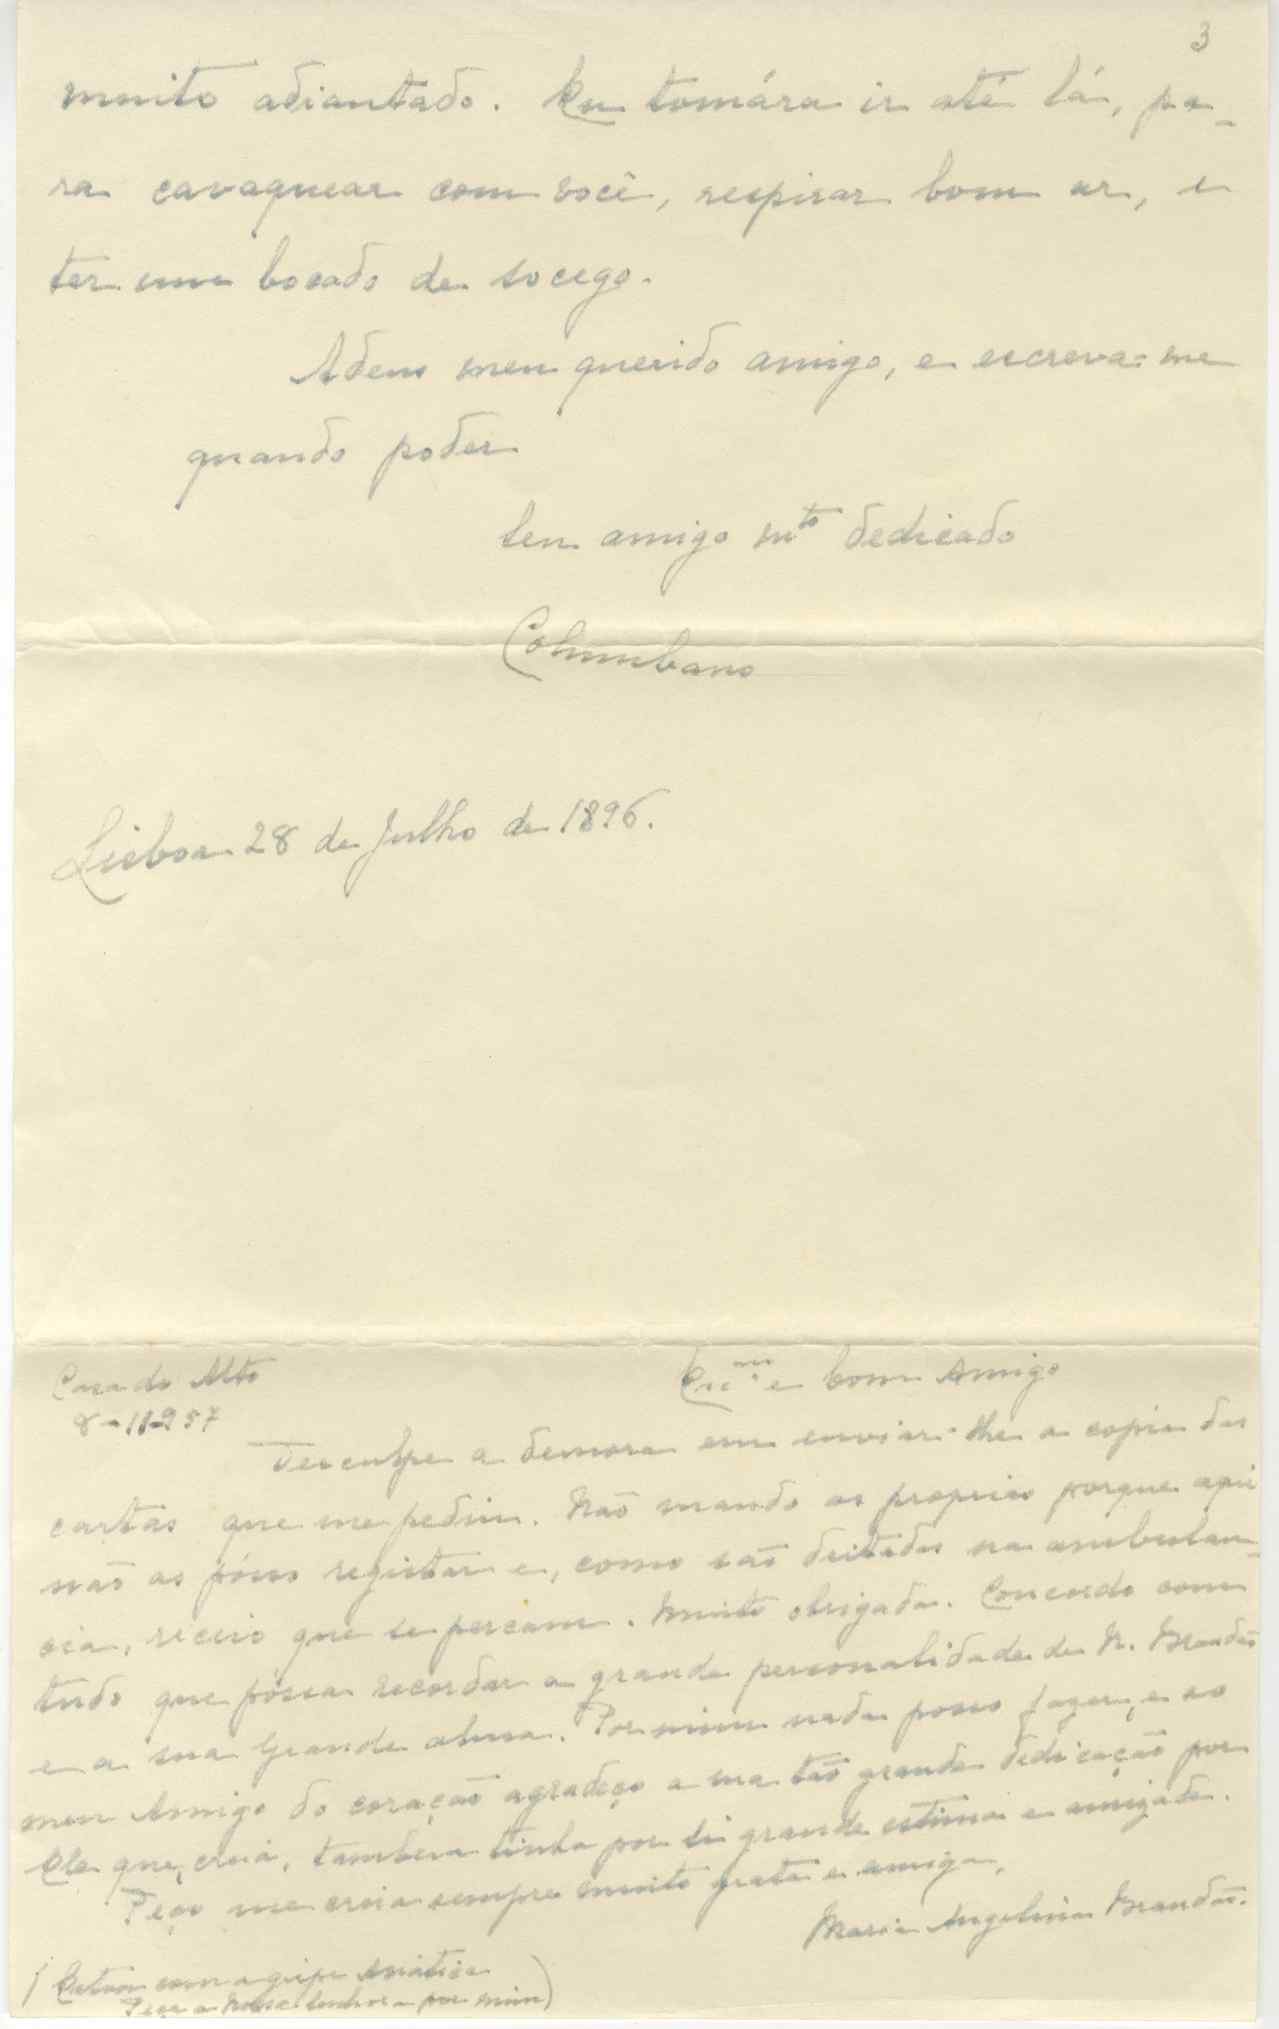 3
muito adiantado. Eu tomára ir até lá, pa-
ra cavaquear com você, respirar bom ar, e
ter um bocado de socego.
Adeus meu querido amigo, e escreva-me
quando poder
Seu amigo mto dedicado
Columbano
Lisboa 28 de Julho de 1896.
Casa do Alto
8-11-957
Exmo. e bom Amigo
Desculpe a demora em enviar-lhe a copia das
cartas que me pediu. Não mando as proprias porque aqui
não as pósso registar e, como são deitadas na ambulan-
cia, receio que se percam. Muito obrigada. Concordo com
tudo que póssa recordar a grande personalidade de R. Brandão
e a sua grande alma. Por mim nada posso fazer, e ao
meu Amigo do coração agradeço a sua tão grande dedicação por
Ele que, creia, tambem tinha por si grande estima e amizade.
Peço me creia sempre muito grata e amiga,
Maria Angelina Brandão.
(Estou com a gripe Asiática
Peça a Nossa Senhora por mim)